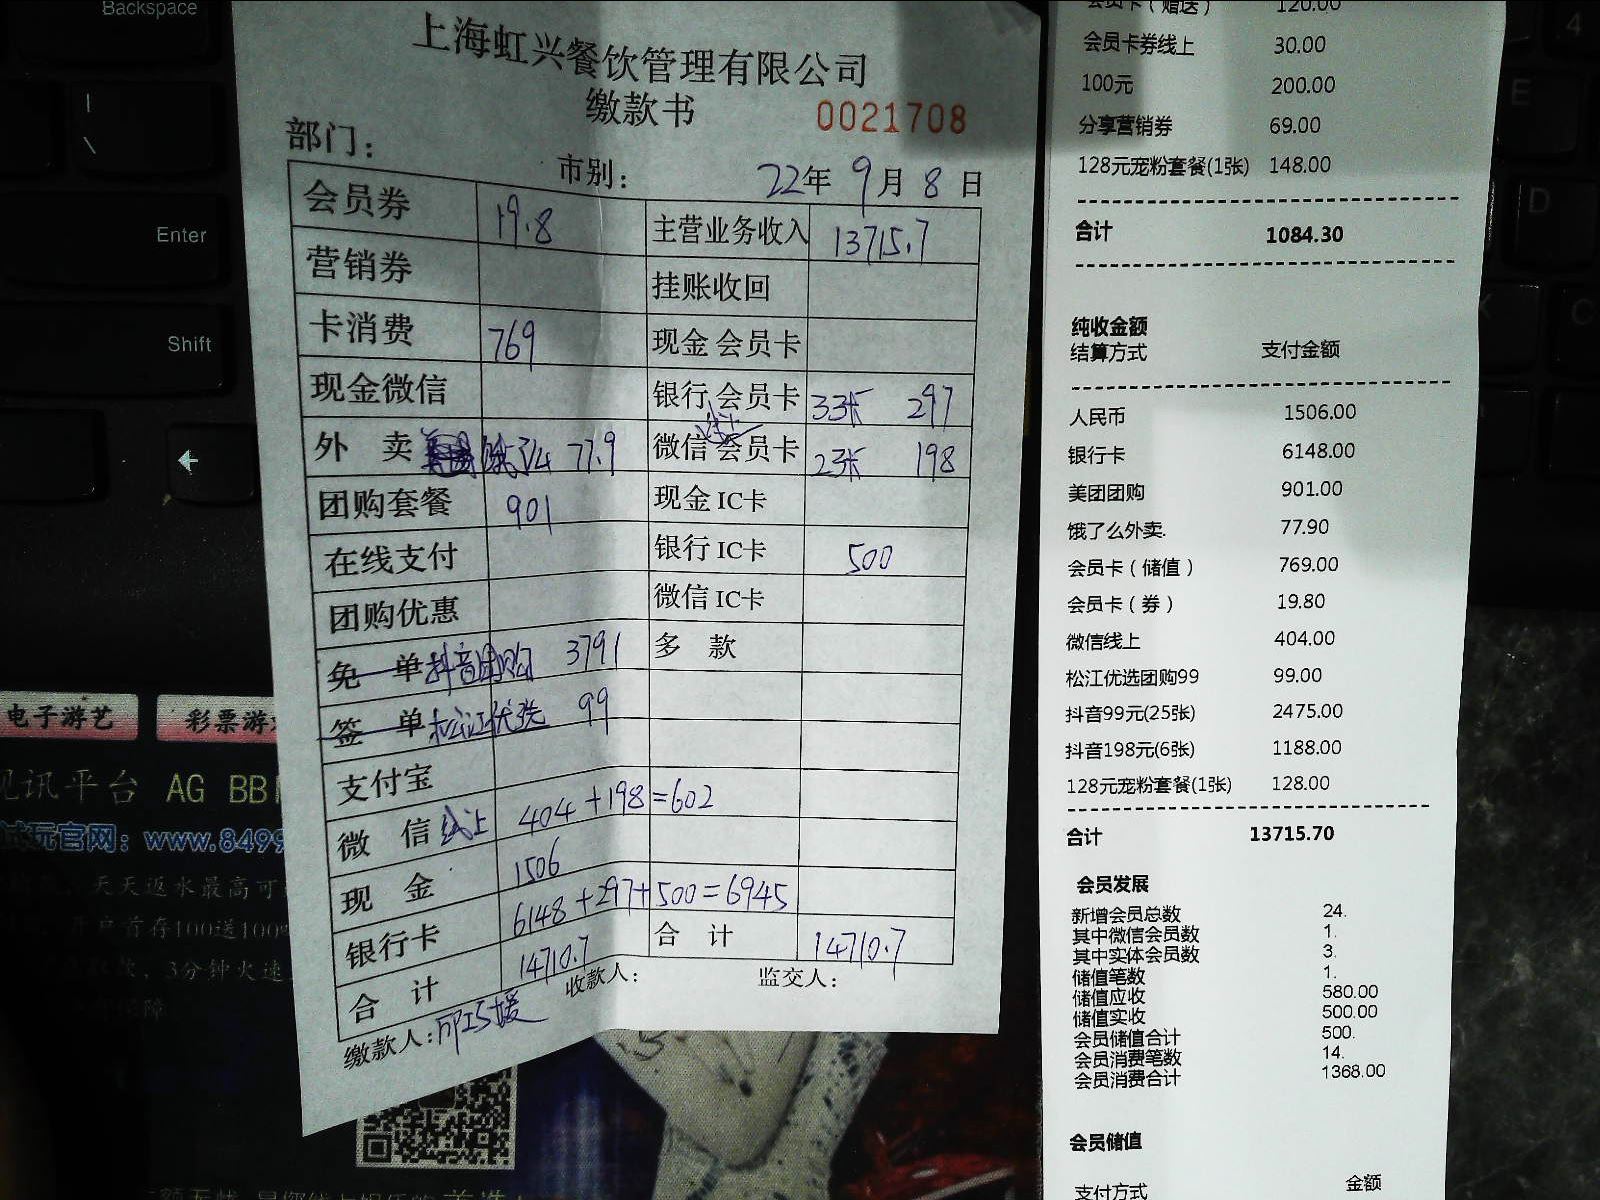 Backspace
Enter
Shift
上海虹兴餐饮管理有限公司
缴款书 0021708
部门： 市别： 22年 9月 8日
会员券 19.8 主营业务收入 13715.7
营销券 挂账收回
卡消费 769 现金会员卡
现金微信 银行会员卡 3张 297
外卖 饿了么 77.9 微信线上会员卡 2张 198
团购套餐 901 现金IC卡
在线支付 银行IC卡 500
团购优惠 微信IC卡
免单 抖音团购 3791 多款
签单 松江优选 99
支付宝
微信线上 404+198=602
现金 1506
银行卡 6148+297+500=6945
合计 14710.7 合计 14710.7
缴款人： 收款人： 监交人：
会员卡（赠送） 120.00
会员卡券线上 30.00
100元 200.00
分享营销券 69.00
128元宠粉套餐(1张) 148.00
合计 1084.30
纯收金额
结算方式 支付金额
人民币 1506.00
银行卡 6148.00
美团团购 901.00
饿了么外卖. 77.90
会员卡（储值） 769.00
会员卡（券） 19.80
微信线上 404.00
松江优选团购99 99.00
抖音99元(25张) 2475.00
抖音198元(6张) 1188.00
128元宠粉套餐(1张) 128.00
合计 13715.70
会员发展
新增会员总数 24.
其中微信会员数 1.
其中实体会员数 3.
储值笔数 1.
储值应收 580.00
储值实收 500.00
会员储值合计 500.
会员消费笔数 14.
会员消费合计 1368.00
会员储值
支付方式 金额
电子游艺
彩票游
视讯平台 AG BB
试玩官网：www.8499
天天返水最高可
开户首存100送100
3分钟火速